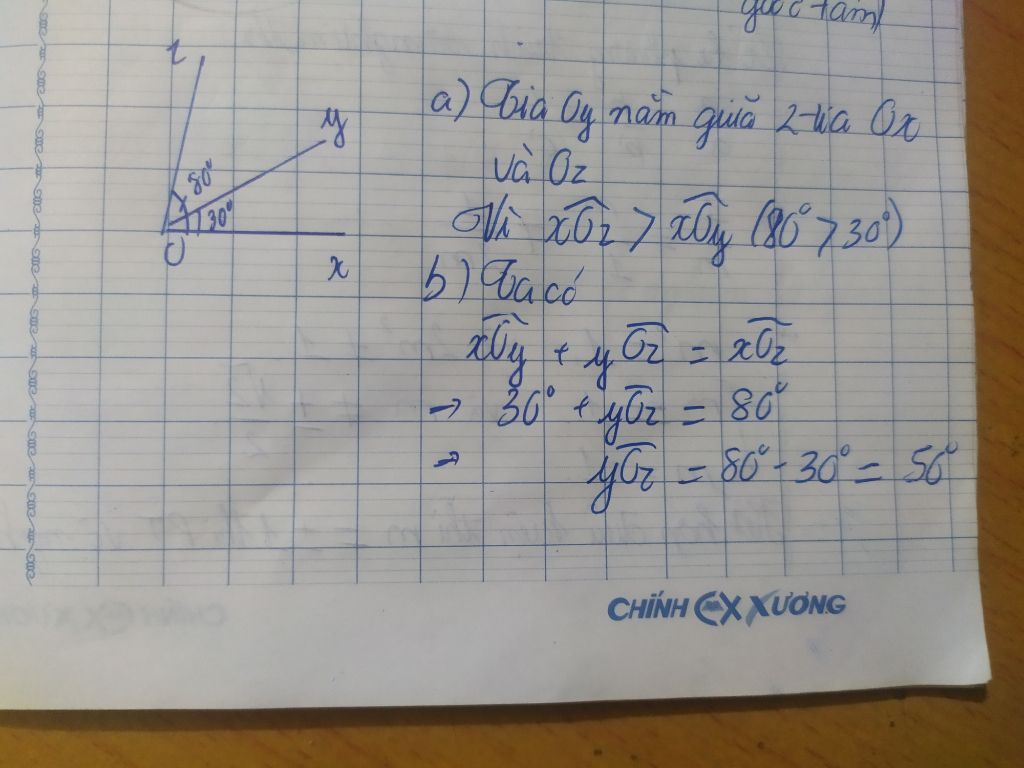 góc tám
z
y
80°
30°
O
x
a) Tia Oy nằm giữa 2 tia Ox
và Oz
Vì xOz > xOy (80° > 30°)
b) Ta có
xOy + yOz = xOz
→ 30° + yOz = 80°
→ yOz = 80° - 30° = 50°
CHÍNH EX XƯƠNG